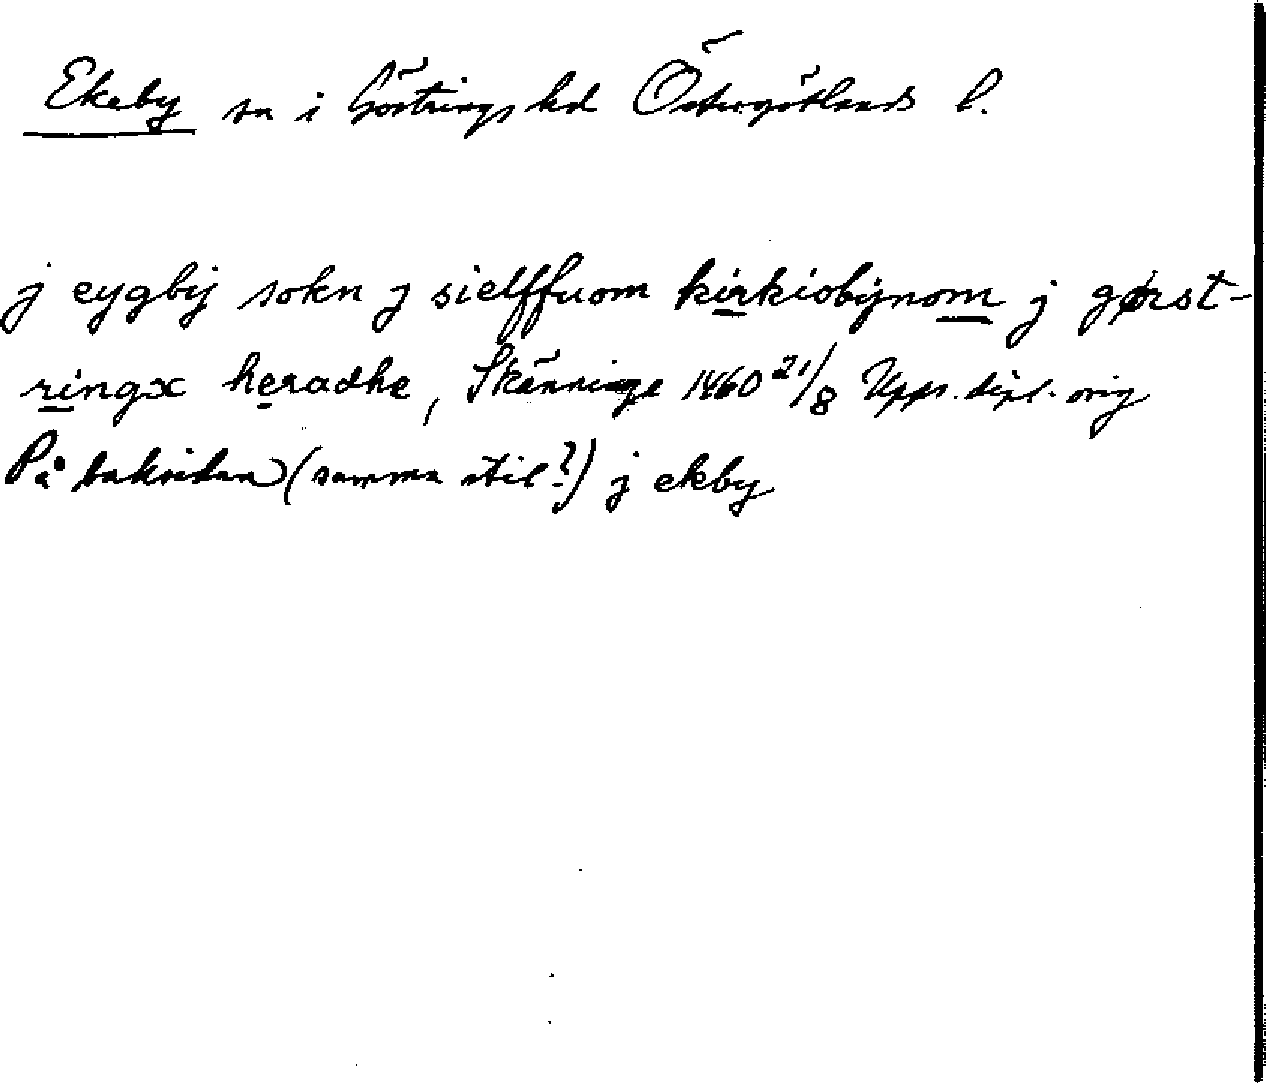 Ekeby sn i Göstrings hd Östergötlands l.
j eygbij sokn j sielffuom kirkiobÿnom j gørst-
ringx heradhe, Skänninge 1460 21/8 Upps. dipl. orig
På baksidan (samma stil?) j ekby